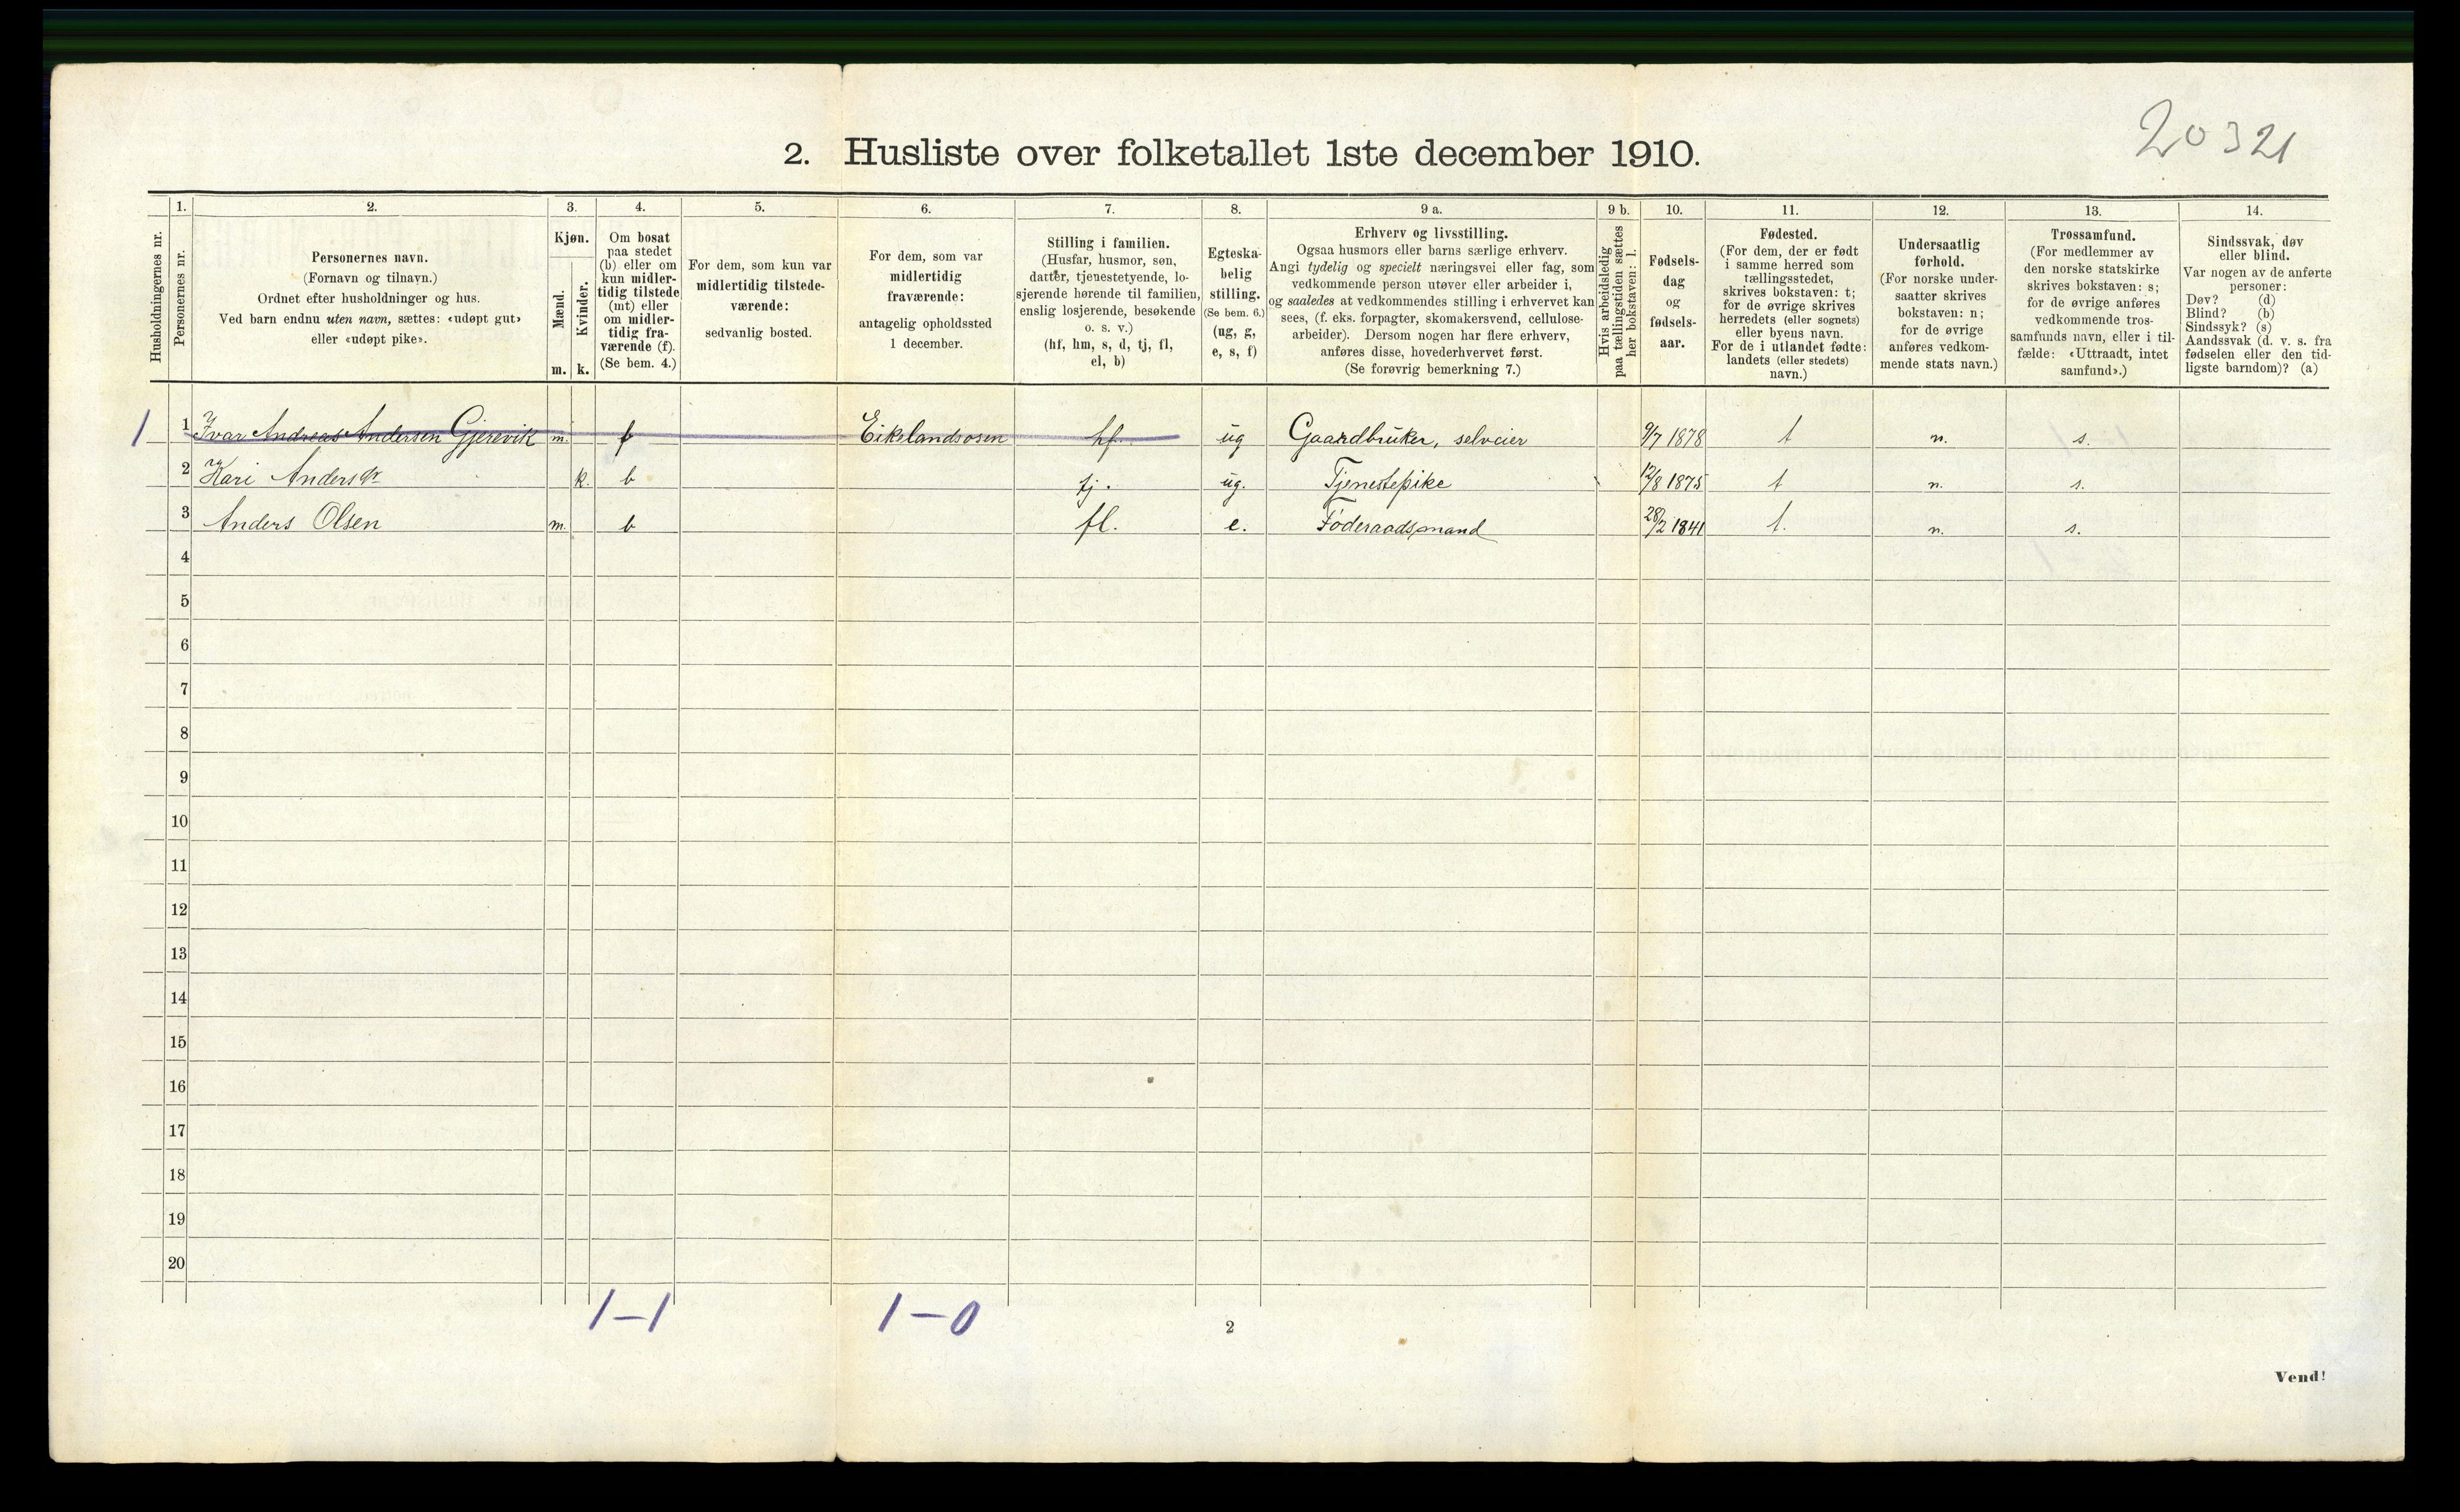 20321
2. Husliste over folketallet 1ste december 1910.
Husholdningernes nr.
1.
Personernes nr.
2.
Personernes navn.
(Fornavn og tilnavn.)
Ordnet efter husholdninger og hus.
Ved barn endnu uten navn, sættes: «udøpt gut»
eller «udøpt pike».
3.
Kjøn.
Mænd.
Kvinder.
m. k.
4.
Om bosat
paa stedet
(b) eller om
kun midler-
tidig tilstede
(mt) eller
om midler-
tidig fra-
værende (f).
(Se bem. 4.)
5.
For dem, som kun var
midlertidig tilstede-
værende:
sedvanlig bosted.
6.
For dem, som var
midlertidig
fraværende:
antagelig opholdssted
1 december.
7.
Stilling i familien.
(Husfar, husmor, søn,
datter, tjenestetyende, lo-
sjerende hørende til familien,
enslig losjerende, besøkende
o. s. v.)
(hf, hm, s, d, tj, fl,
el, b)
8.
Egteska-
belig
stilling.
(Se bem. 6.)
(ug, g,
e, s, f)
9 a.
Erhverv og livsstilling.
Ogsaa husmors eller barns særlige erhverv.
Angi tydelig og specielt næringsvei eller fag, som
vedkommende person utøver eller arbeider i,
og saaledes at vedkommendes stilling i erhvervet kan
sees, (f. eks. forpagter, skomakersvend, cellulose-
arbeider). Dersom nogen har flere erhverv,
anføres disse, hovederhvervet først.
(Se forøvrig bemerkning 7.)
9 b.
Hvis arbeidsledig
paa tællingstiden sættes
her bokstaven: l.
10.
Fødsels-
dag
og
fødsels-
aar.
11.
Fødested.
(For dem, der er født
i samme herred som
tællingsstedet,
skrives bokstaven: t;
for de øvrige skrives
herredets (eller sognets)
eller byens navn.
For de i utlandet fødte:
landets (eller stedets)
navn.)
12.
Undersaatlig
forhold.
(For norske under-
saatter skrives
bokstaven: n;
for de øvrige
anføres vedkom-
mende stats navn.)
13.
Trossamfund.
(For medlemmer av
den norske statskirke
skrives bokstaven: s;
for de øvrige anføres
vedkommende tros-
samfunds navn, eller i til-
fælde: «Uttraadt, intet
samfund».)
14.
Sindssvak, døv
eller blind.
Var nogen av de anførte
personer:
Døv? (d)
Blind? (b)
Sindssyk? (s)
Aandssvak (d. v. s. fra
fødselen eller den tid-
ligste barndom)? (a)
1 1 Ivar Andreas Andersen Gjerevik m. f Eikelandsosen hf. ug Gaardbruker, selveier 9/7 1878 t n. s.
2 Kari Andersdr k. b tj. ug. Tjenestepike 12/8 1875 t n. s.
3 Anders Olsen m. b fl. e. Føderaadsmand 28/2 1841 t. n. s.
4
5
6
7
8
9
10
11
12
13
14
15
16
17
18
19
20
1–1 1–0
2
Vend!